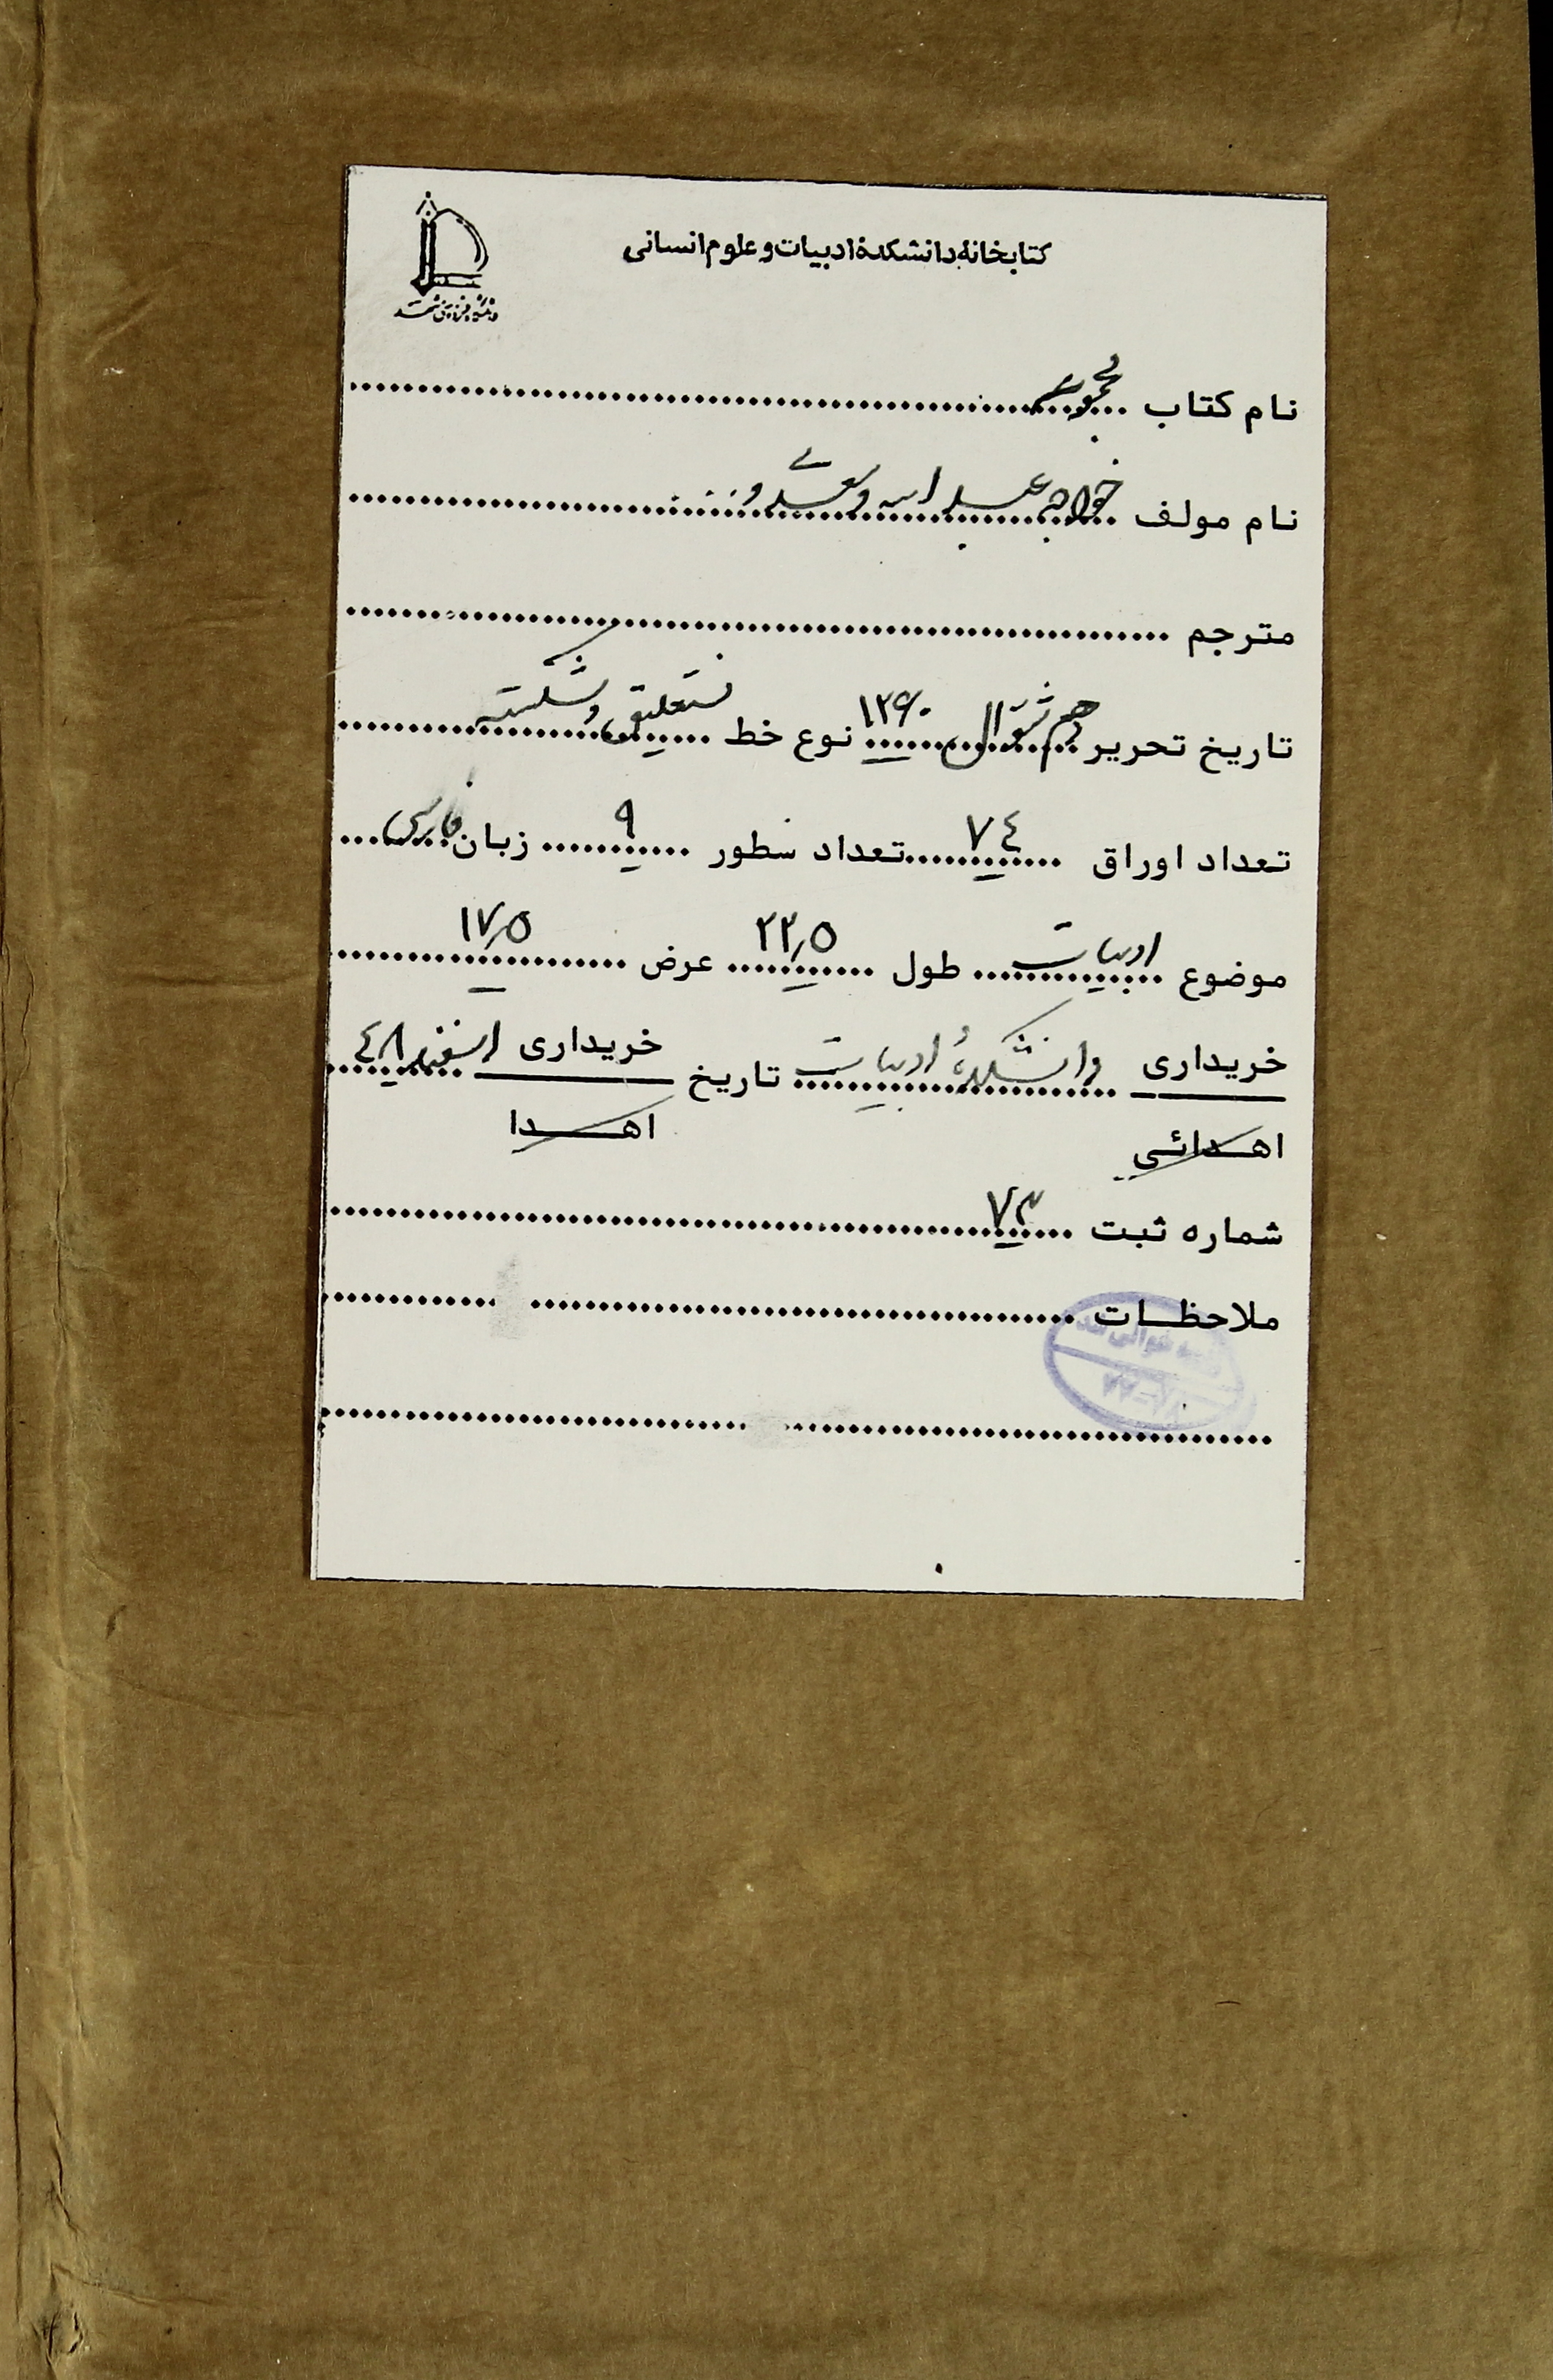 کتابخانهٔ دانشکدهٔ ادبیات و علوم انسانی
دانشگاه فردوسی مشهد
نام کتاب مجموعه
نام مولف خواجه عبد الله و سعدی و ...
مترجم
تاریخ تحریر شوال ۱۲۶۰ نوع خط نستعلیق و شکسته
تعداد اوراق ٧٤ تعداد سطور ٩ زبان فارسی
موضوع ادبیات طول ٢٢٫٥ عرض ١٧٫٥
خریداری دانشکدهٔ ادبیات تاریخ خریداری اسفند ٤٨
اهدائی اهدا
شماره ثبت ٧٣
ملاحظات